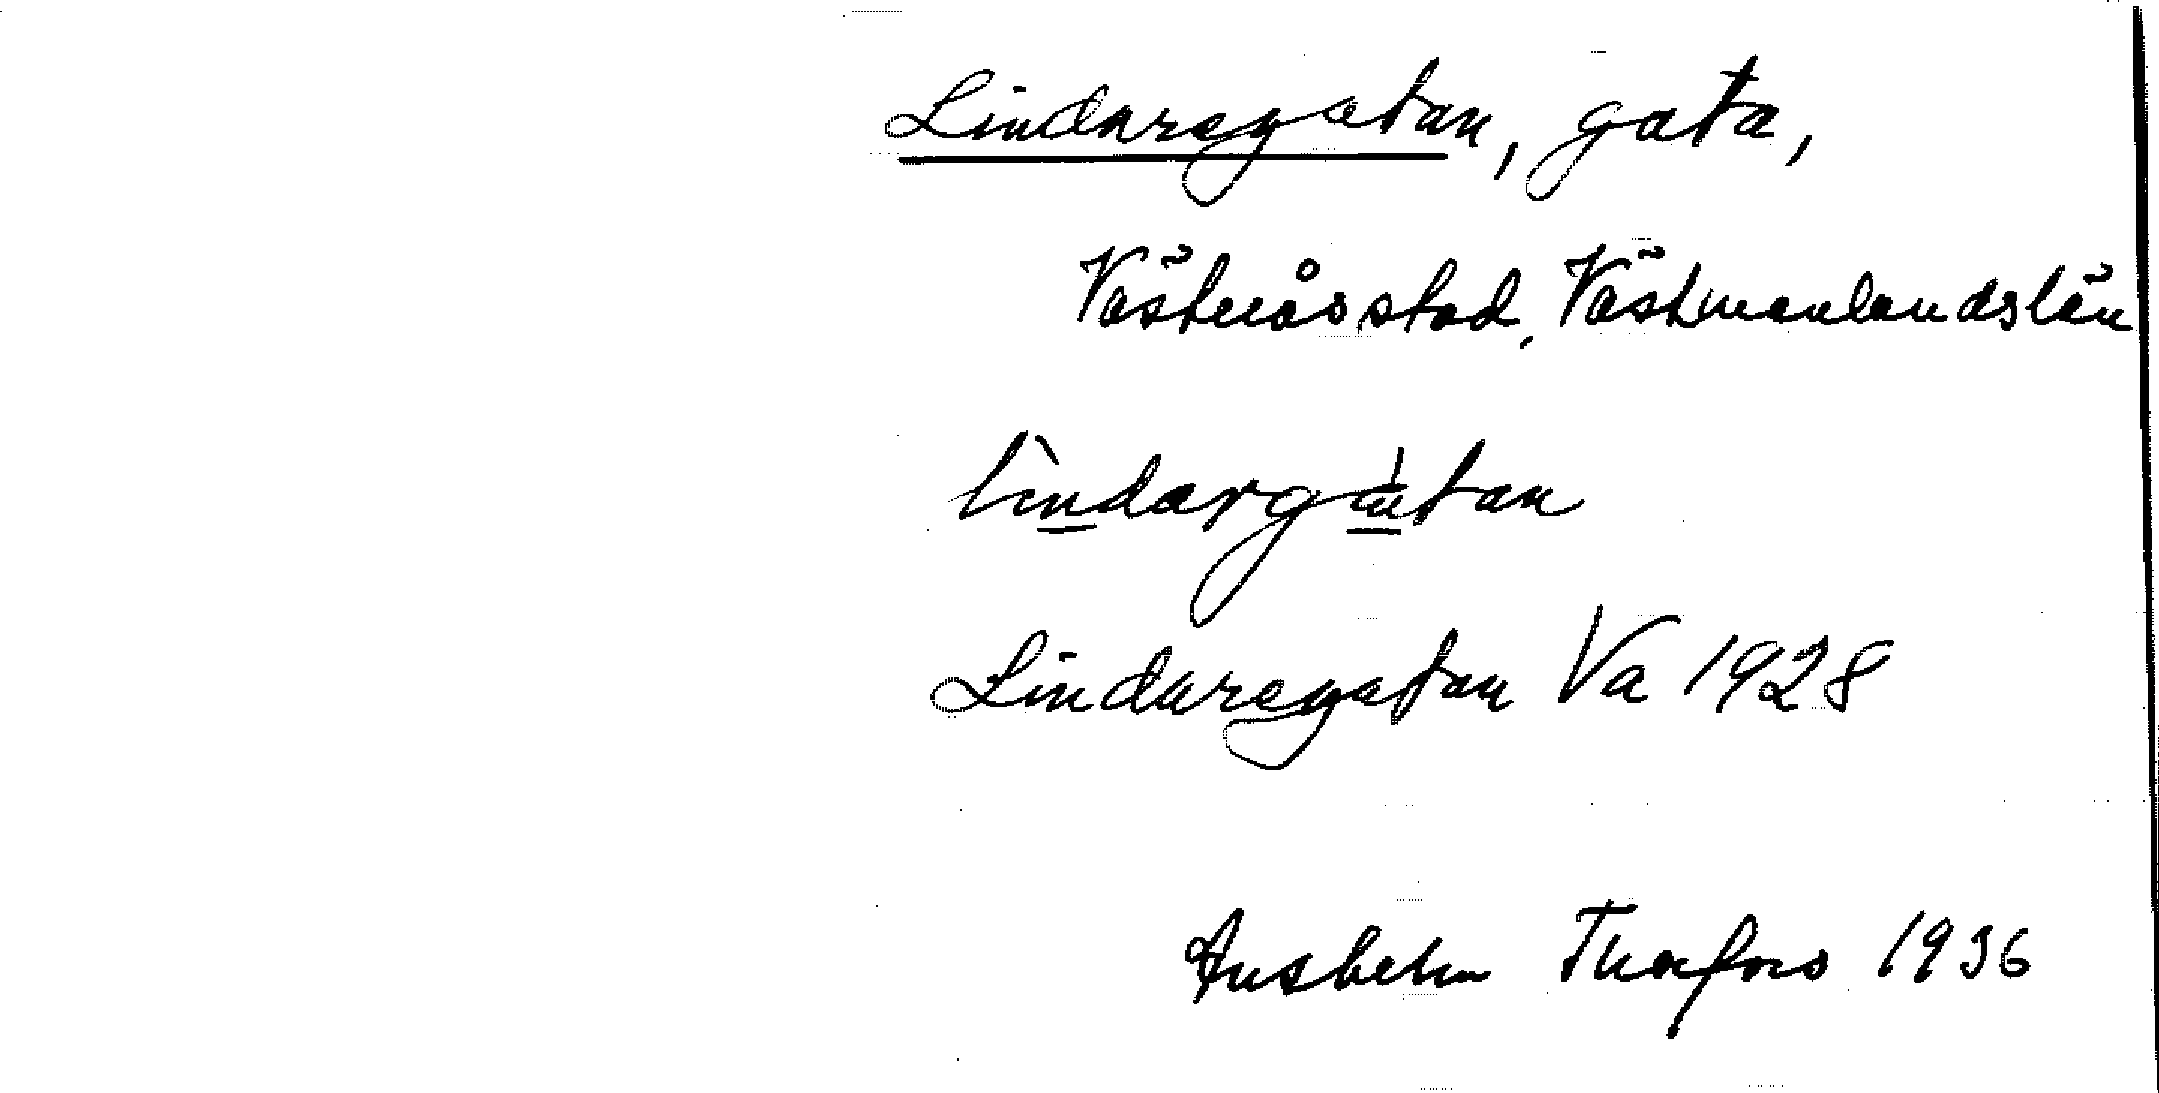 Lindaregatan, gata,
Västerås stad, Västmanlands län
lìndargátan
Lindaregatan Va 1928
Thorfors 1936